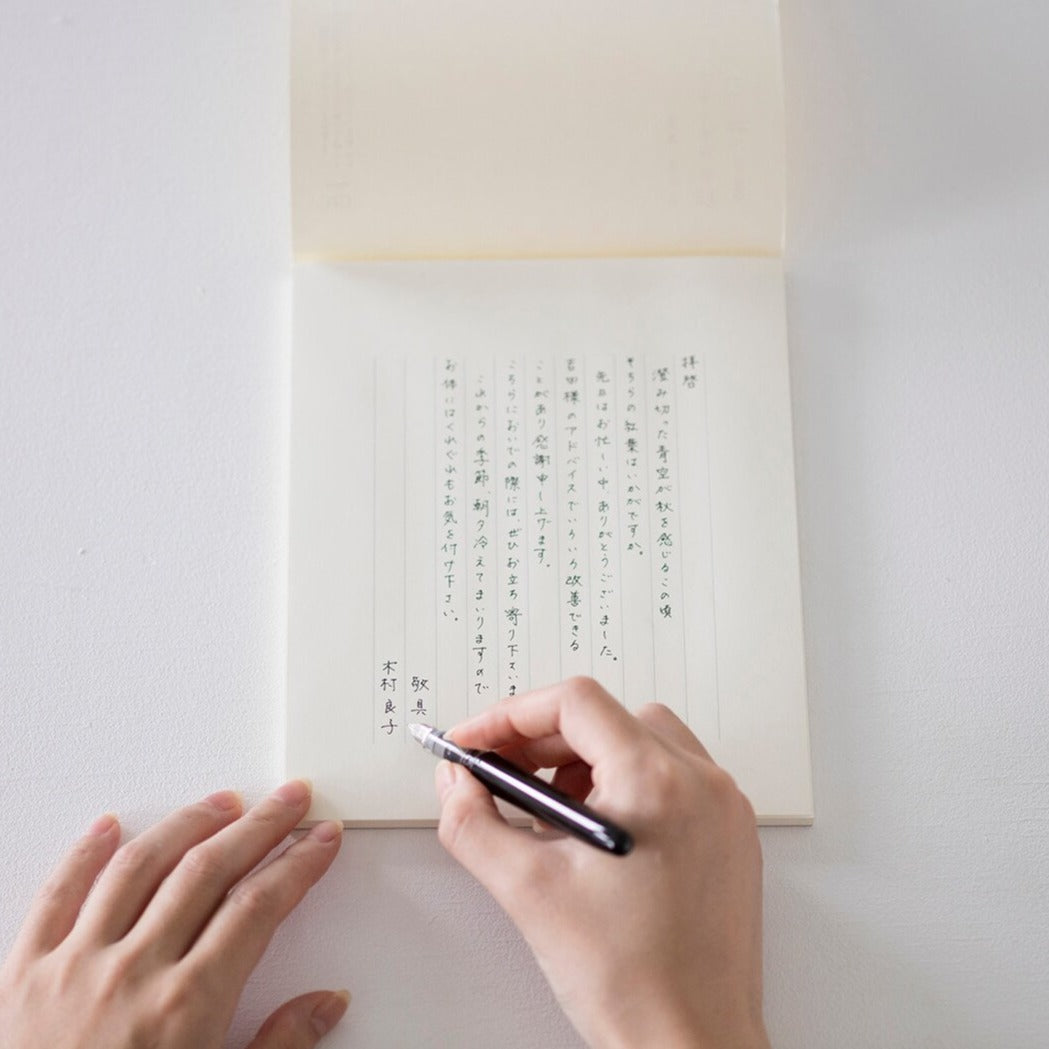 拝啓
澄み切った青空が秋を感じるこの頃
そちらの紅葉はいかがですか。
先日はお忙しい中、ありがとうございました。
吉田様のアドバイスでいろいろ改善できる
ことがあり感謝申し上げます。
こちらにおいでの際には、ぜひお立ち寄り下さいま
これからの季節、朝夕冷えてまいりますので
お体にはくれぐれもお気を付け下さい。
敬具
木村良子